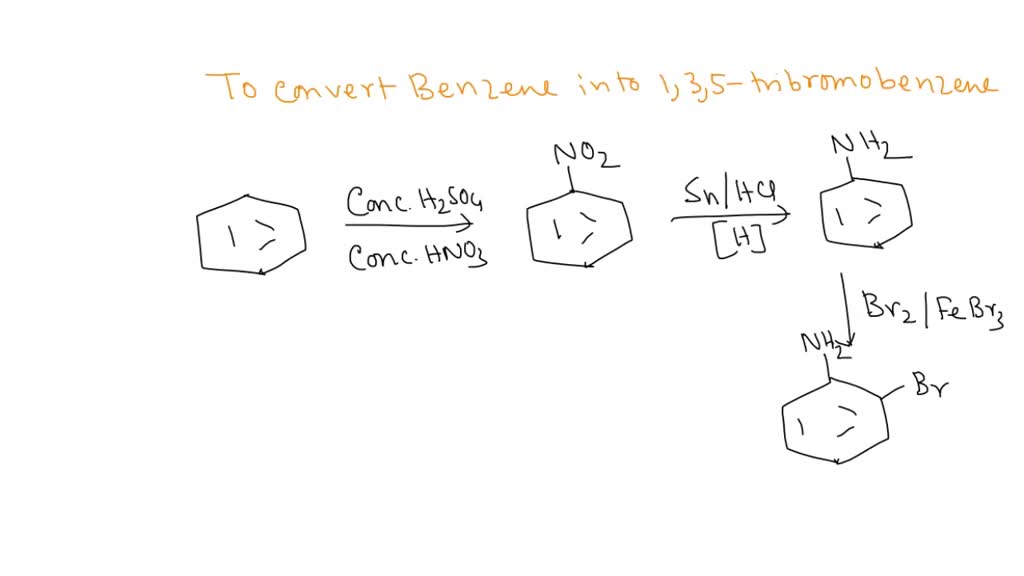 To convert Benzene into 1,3,5-tribromobenzene
NO2
NH2
Conc. H2SO4
Conc. HNO3
Sn/HCl
[H]
Br2/FeBr3
NH2
Br